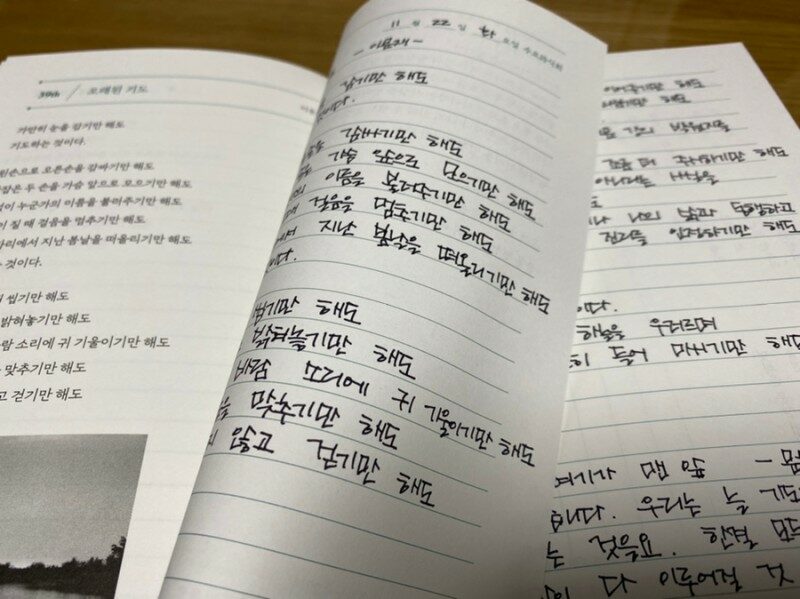 30th / 오래된 기도
가만히 눈을 감기만 해도
기도하는 것이다.
왼손으로 오른손을 감싸기만 해도
맞잡은 두 손을 가슴 앞으로 모으기만 해도
없이 누군가의 이름을 불러주기만 해도
이 질 때 걸음을 멈추기만 해도
자리에서 지난 봄날을 떠올리기만 해도
것이다.
씹기만 해도
밝혀놓기만 해도
람 소리에 귀 기울이기만 해도
맞추기만 해도
고 걷기만 해도
11 월 22 일 화 요일
- 이문재 -
감기만 해도
이다.
감싸기만 해도
가슴 앞으로 모으기만 해도
이름을 불러주기만 해도
걸음을 멈추기만 해도
지난 봄날을 떠올리기만 해도
이다.
씹기만 해도
밝혀놓기만 해도
바람 소리에 귀 기울이기만 해도
을 맞추기만 해도
않고 걷기만 해도
이어주기만 해도
해도
주시하기만 해도
나의 삶과 동행하고
인정하기만 해도
이다.
하늘을 우러르며
히 들어 마시기만 해도
여기가 맨 앞
니다. 우리는 늘 기도
는 것을요. 한결
다 이루어질 것